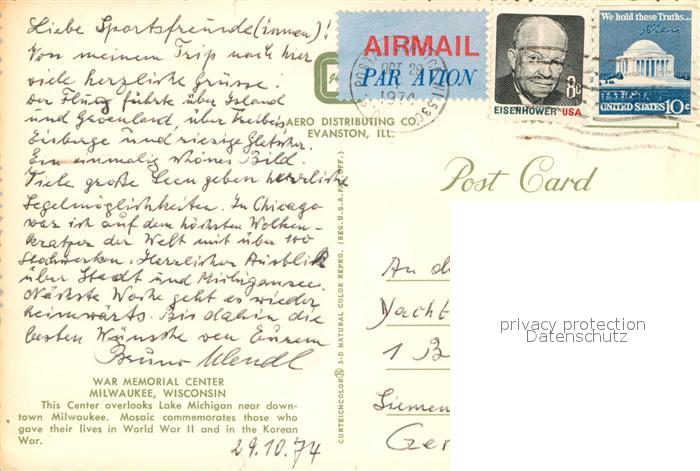 Liebe Sportsfreunde(innen)!
Von meinem Trip nach hier
viele herzliche Grüsse.
Der Flug führte über Island
und Groenland, über Treibeis,
Eisberge und riesige Gletscher.
Ein einmalig schönes Bild.
Viele große Seen geben herrliche
Segelmöglichkeiten. In Chicago
war ich auf dem höchsten Wolken-
kratzer der Welt mit über 100
Stockwerken. Herrlicher Ausblick
über Stadt und Michigansee.
Nächste Woche geht es wieder
heimwärts. Bis dahin die
besten Wünsche von Eurem
Bruno
WAR MEMORIAL CENTER
MILWAUKEE, WISCONSIN
This Center overlooks Lake Michigan near down-
town Milwaukee. Mosaic commemorates those who
gave their lives in World War II and in the Korean
War.
29.10.74
AERO DISTRIBUTING CO.
EVANSTON, ILL.
CURTEICHCOLOR 3-D NATURAL COLOR REPRO. (REG. U.S.A. PAT. OFF.)
AIRMAIL
PAR AVION
OCT 29
1974
8c
EISENHOWER USA
We hold these Truths...
UNITED STATES 10c
Post Card
An d
Yacht
1 B
Siemen
Ger
privacy protection
Datenschutz